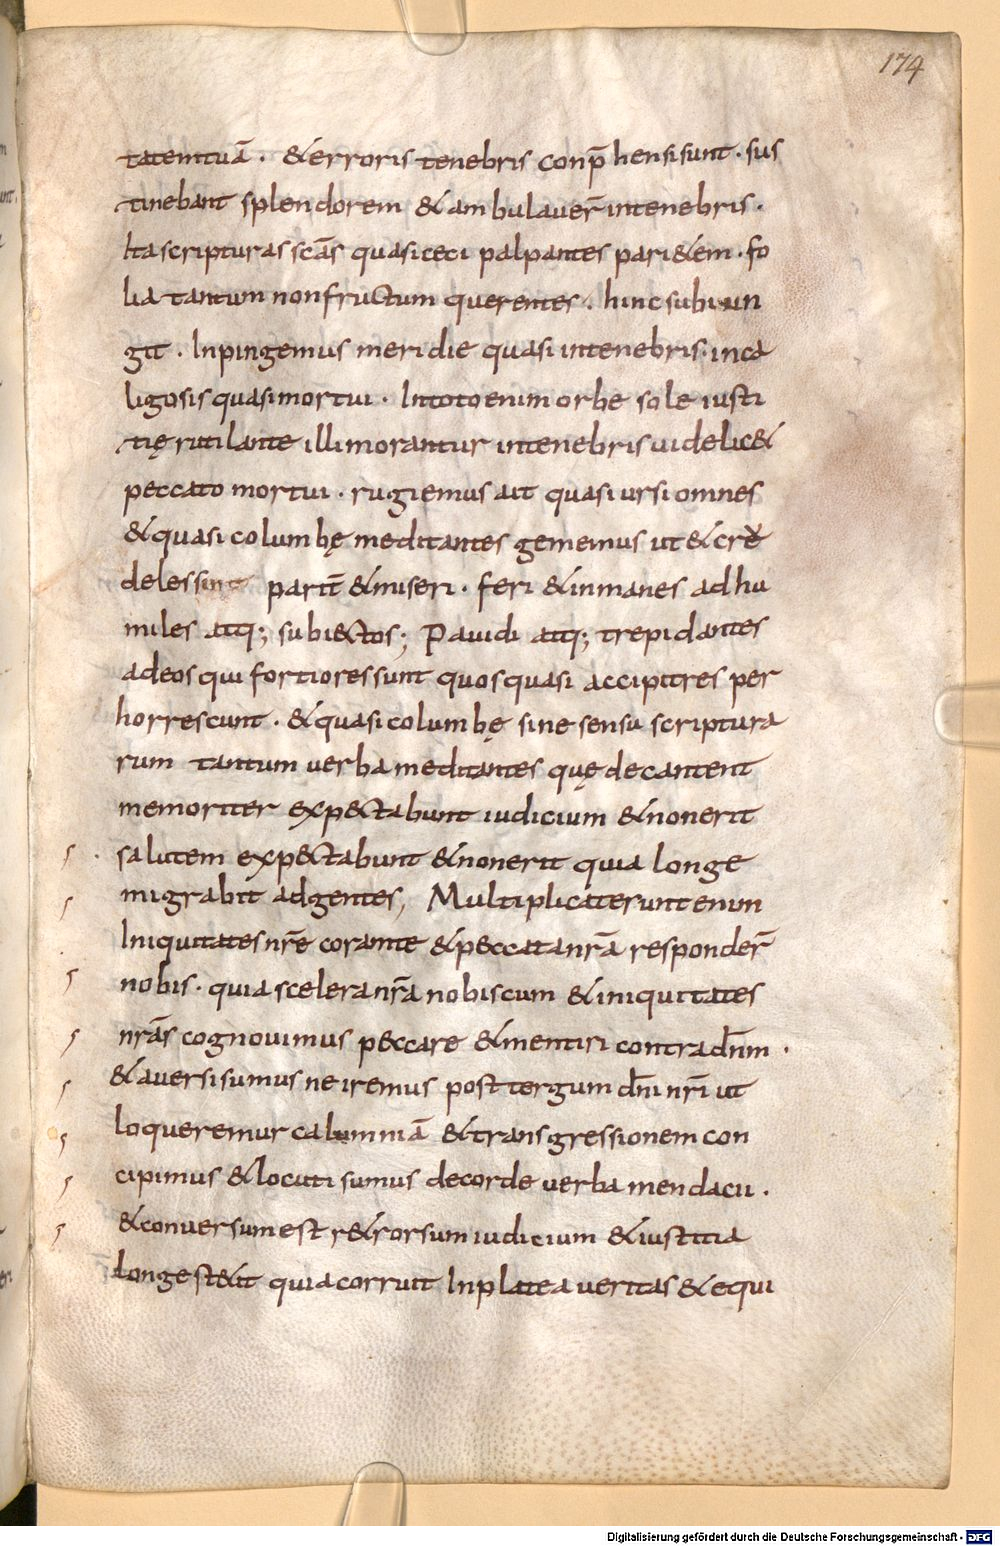 174
tatem tuā. & erroris tenebris conp̄hensi sunt. sus
tinebant splendorem & ambulauer̄ in tenebris.
Ita scripturas scās quasi ceci palpantes pari&em. fo
lia tantum non fructum querentes. hinc subiun
git. Inpingemus meridie quasi in tenebris. in ca
ligosis quasi mortui. In toto enim orbe sole iusti
tię rutilante illi morantur in tenebris uidelic&
peccato mortui. rugiemus ait quasi ursi omnes
& quasi columbę meditantes gememus ut & cru
deles sint parit̄ & miseri. feri & inmanes ad hu
miles atq; subiectos; Pauidi atq; trepidantes
ad eos qui fortiores sunt quos quasi accipitres per
horrescunt. & quasi columbę sine sensu scriptura
rum tantum uerba meditantes quę decantent
memoriter exp&abunt iudicium & non erit
salutem exp&abunt & non erit quia longe
migrabit ad gentes, Multiplicate runt enim
Iniquitates nr̄e coram te & peccata nr̄a responder̄
nobis. quia scelera nr̄a nobiscum & iniquitates
nr̄as cognouimus peccare & mentiri contra dn̄m.
& auersi sumus ne iremus post tergum dn̄i nr̄i ut
loqueremur calumniā & transgressionem con
cipimus & locuti sumus de corde uerba mendacii.
& conuersum est r&rorsum iudicium & iustitia
longe st&it quia corruit In platea ueritas & equi
Digitalisierung gefördert durch die Deutsche Forschungsgemeinschaft - DFG